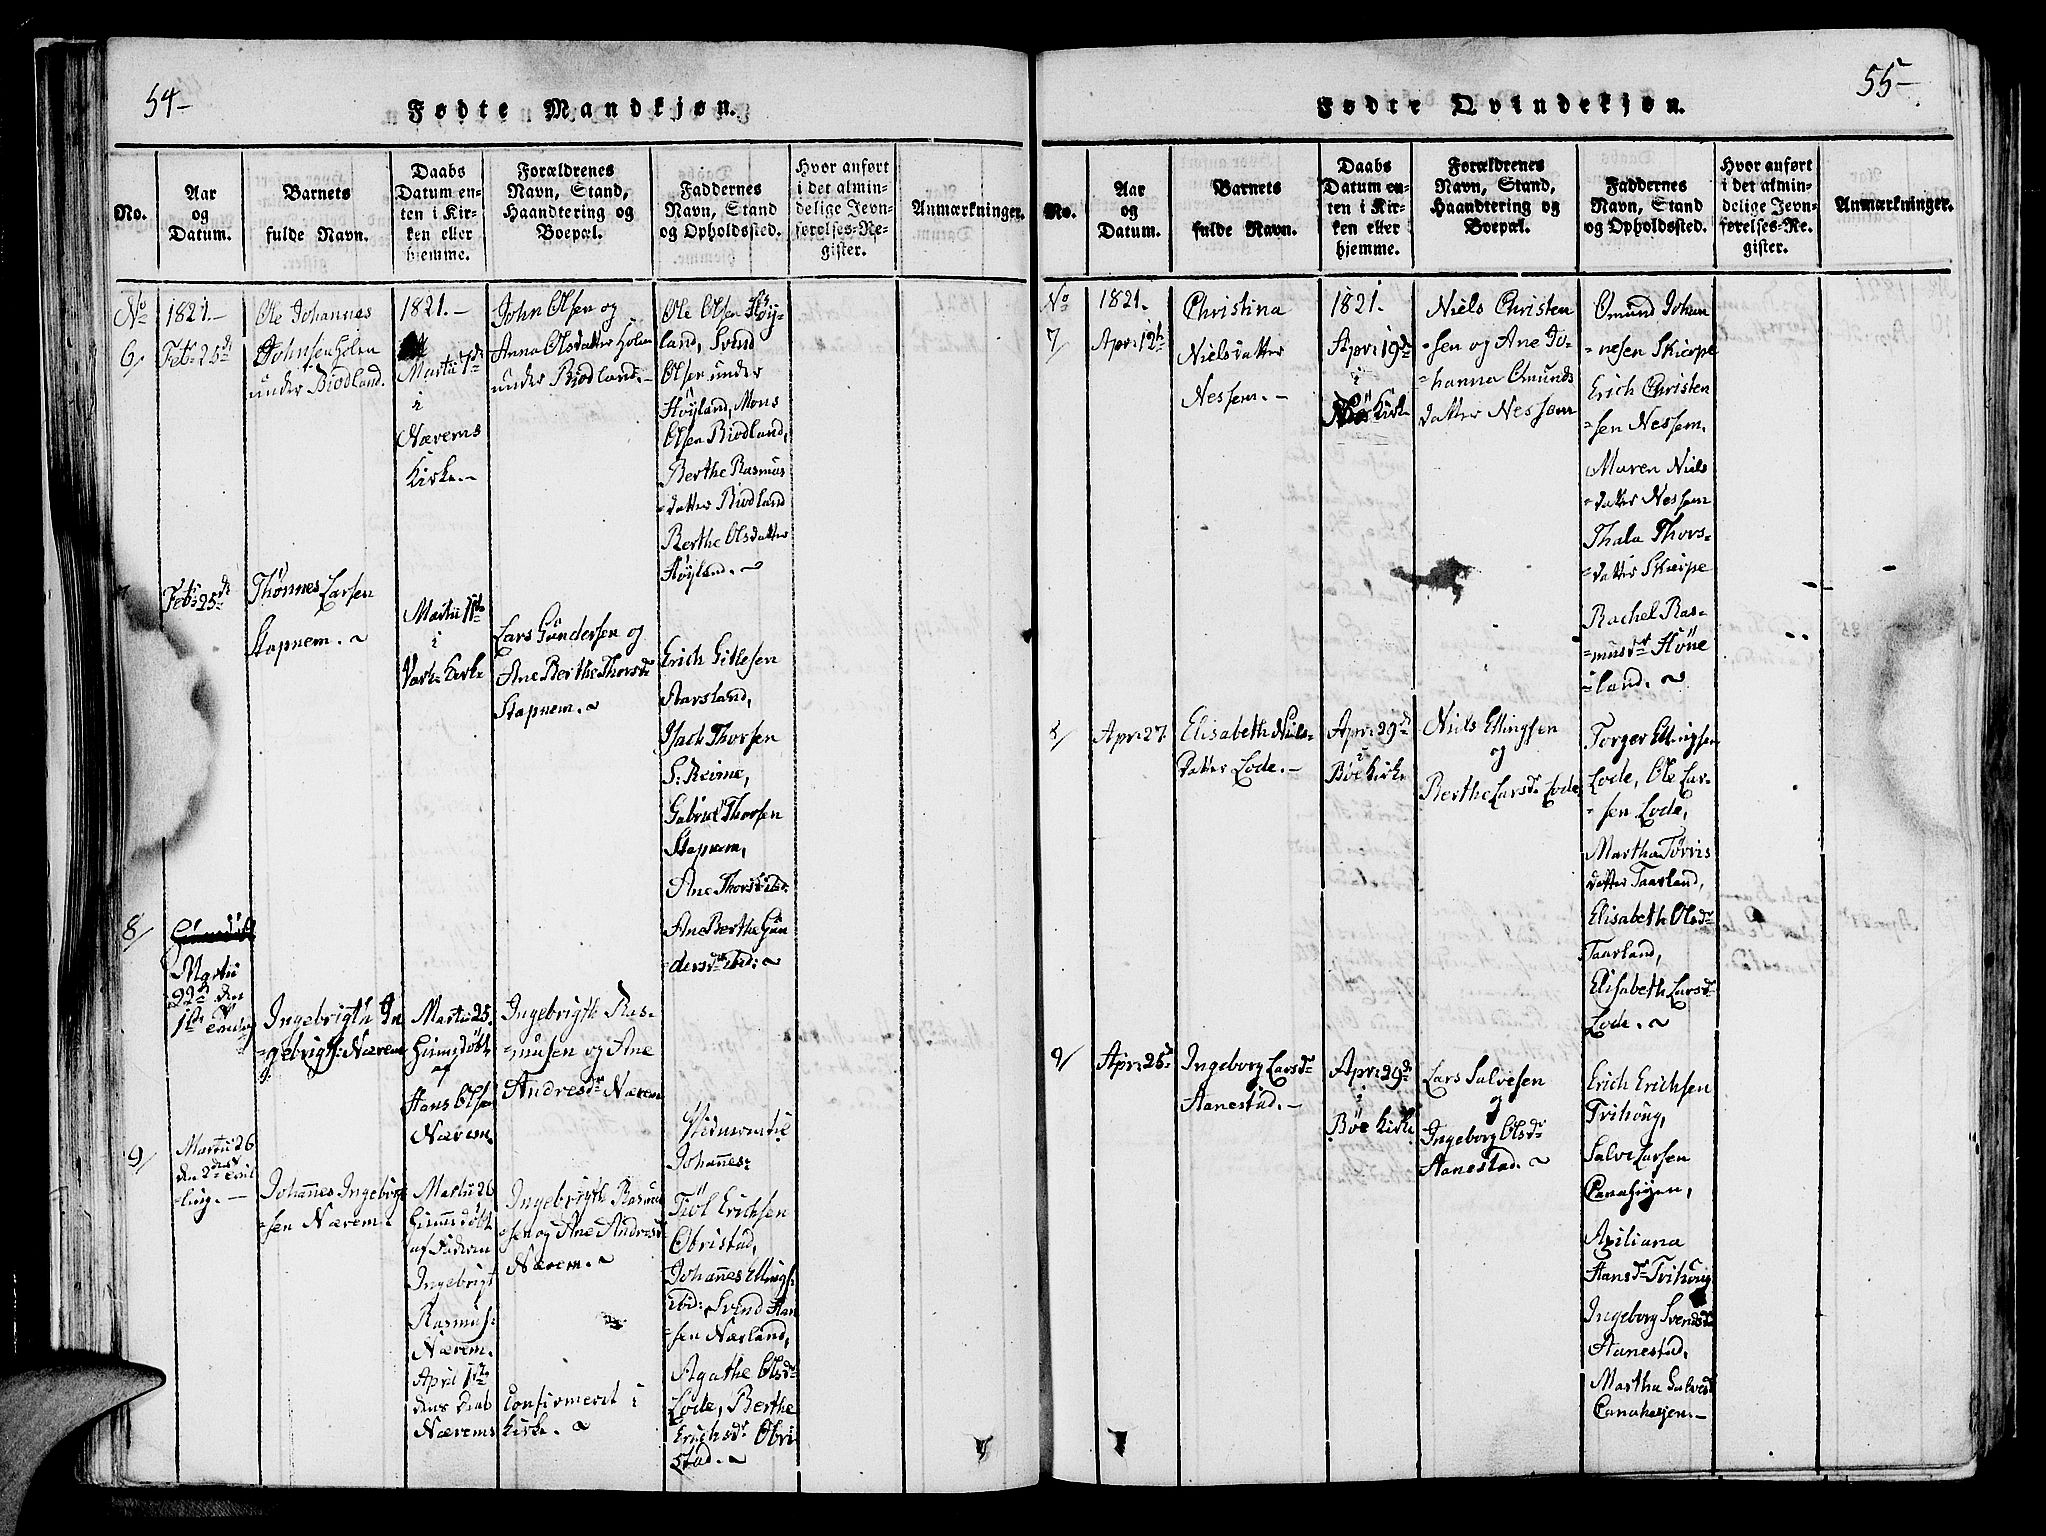 54-
Fødte Mandkjøn.
No.
Aar
og
Datum.
Barnets
fulde Navn.
Daabs
Datum en-
ten i Kir-
ken eller
hjemme.
Forældrenes
Navn, Stand,
Haandtering og
Boepæl.
Faddernes
Navn, Stand
og Opholdssted.
Hvor anført
i det almin-
delige Jevn-
førelses-Re-
gister.
Anmærkninger.
No
6/
1821.-
Feb: 25de
Ole Johannes
Johnsen Holen
under Biodland.
1821.-
Martii 7de
i
Nærems
Kirke.~
John Olsen og
Anna Olsdatter Holen
under Biodland.-
Ole Olsen Höy-
land, Svend
Olsen under
Höyland, Mons
Olsen Biodland,
Berthe Rasmus
=datter Biodland
Berthe Olsdatter
Höyland. ~
7
Feb: 25de
Thönnes Larsen
Stapnem. ~
Martii 11te
i
Varh: Kirke
Lars Gundersen og
Ane Berthe Thorsdr
Stapnem. ~
Erich Gitlesen
Aarsland,
Isach Thorsen
S: Reime,
Gabriel Thorsen
Stapnem,
Ane Thorsdr ibid:
Ane Berthe Gun
=dersdr ibid: ~
8/
Martii
22de den
1ste
Ingebrigth In
=gebrigts: Nærem
Martii 25.
Hiemedöbt
af
Hans Olsen
Nærem.
Ingebrigth Ras=
=musen og Ane
Andresdr Nærem
Johannes:
9/
Martii 26
den 2den
=ling. -
Johannes Ingebrigt
=sen Nærem.
Martii 26
Hiemedöbt
af Faderen
Ingebrigt
Rasmus:
Nærem.
April 1ste
dens Daab
Nærems
Ingebrigth Rasmus
=sen og Ane Andresdr
Nærem. ~
Confirmeret i
Kirke. ~
Tiöl Erichsen
Obristad,
Johannes Ellings:
ibid: Svend Han
=sen Nærland,
Agathe Olsdr
Lode, Berthe
Erichsdr Obri
stad. ~
55-
Fødte Qvindekjøn.
No.
Aar
og
Datum.
Barnets
fulde Navn.
Daabs
Datum en-
ten i Kir-
ken eller
hjemme.
Forældrenes
Navn, Stand,
Haandtering og
Boepæl.
Faddernes
Navn, Stand
og Opholdssted.
Hvor anført
i det almin-
delige Jevn-
førelses-Re-
gister.
Anmærkninger.
No
7/
1821.
Apr: 12te
Christina
Nielsdatter
Nessem. -
1821.
Apr: 19de
i
Kirke
Niels Christen
=sen og Ane Jo=
=hanna Omunds
datter Nessem
Omund Johan
=nesen Skierpe
Erich Christen
=sen Nessem.
Maren Niels
=datter Nessem
Thala Thors=
=datter Skierpe
Rachel Ras=
=musdr Höne
=land. ~
8/
Apr: 27
Elisabeth Niels=
datter Lode. -
Apr: 29de
i
Böe Kirke
Niels Ellingsen
og
Berthe Larsdr Lode
Torger Ellingsen
Lode, Ole Lar=
=sen Lode,
Martha Törris
datter Taarland,
Elisabeth Olsdr
Taarland,
Elisabeth Larsdr
Lode. ~
9/
Apr: 25de
Ingeborg Larsdr
Aanestad. -
Apr: 29de
i
Böe Kirke
Lars Salvesen
og
Ingeborg Olsdr
Aanestad. ~
Erich Erichsen
Tvihoug,
Salve Larsen
Axiliana
Hansdr Tvihoug
Ingeborg Svendsdr
Aanestad,
Martha Salvesdr